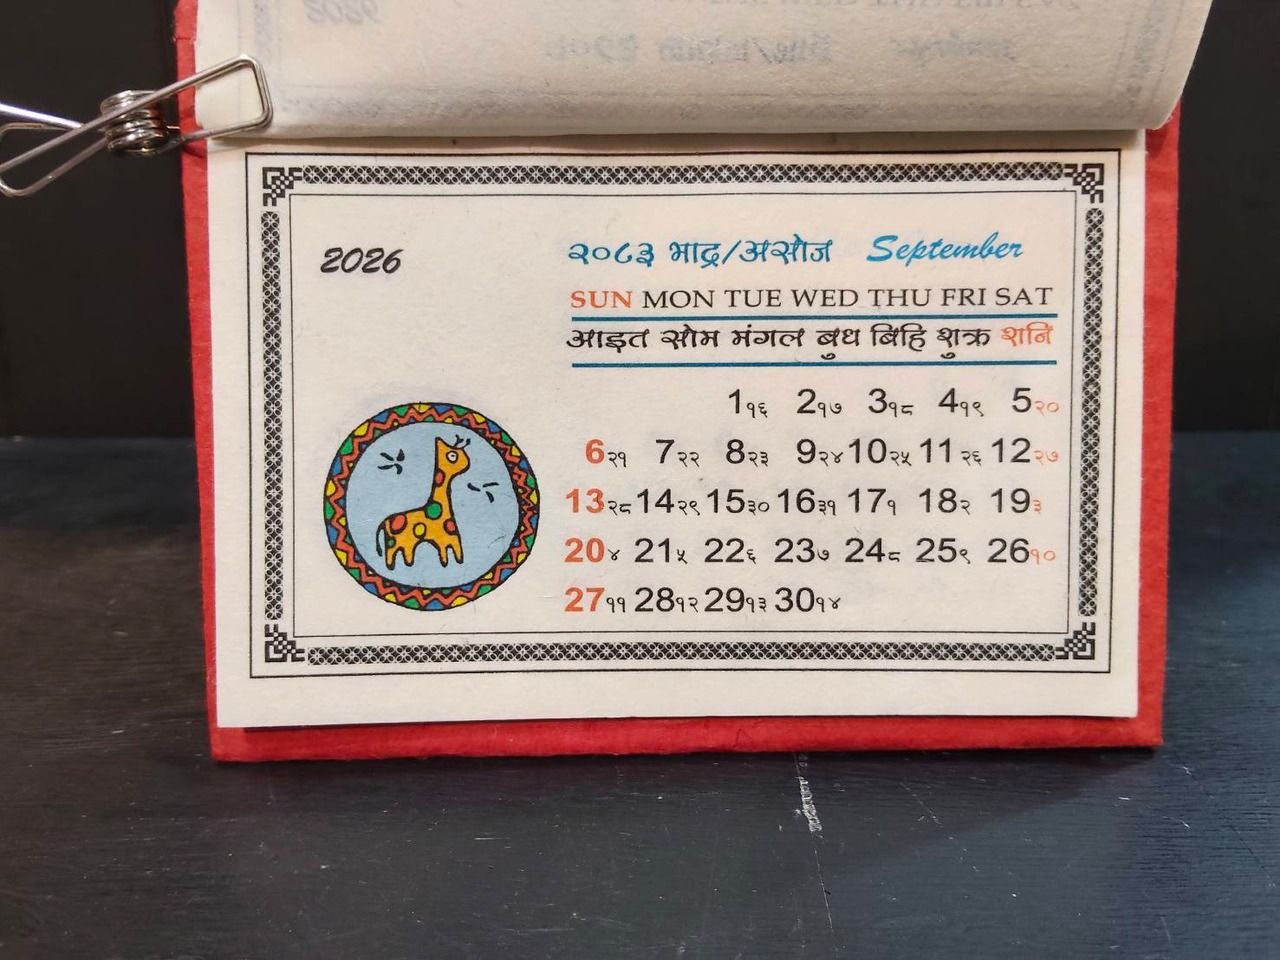 2026
२०८३ भाद्र/असोज September
SUN MON TUE WED THU FRI SAT
आइत सोम मंगल बुध बिहि शुक्र शनि
1१६ 2१७ 3१८ 4१९ 5२०
6२१ 7२२ 8२३ 9२४ 10२५ 11२६ 12२७
13२८ 14२९ 15३० 16३१ 17१ 18२ 19३
20४ 21५ 22६ 23७ 24८ 25९ 26१०
27११ 28१२ 29१३ 30१४